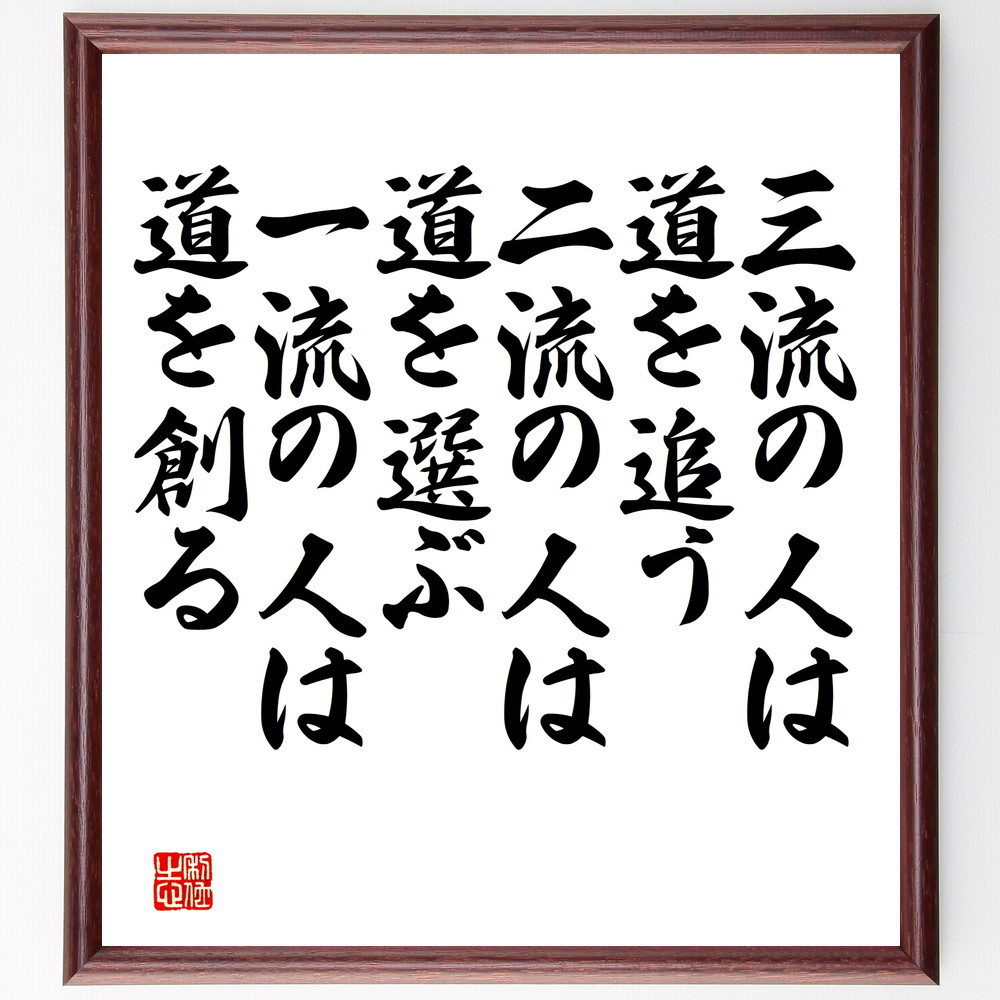 三流の人は
道を追う
二流の人は
道を選ぶ
一流の人は
道を創る